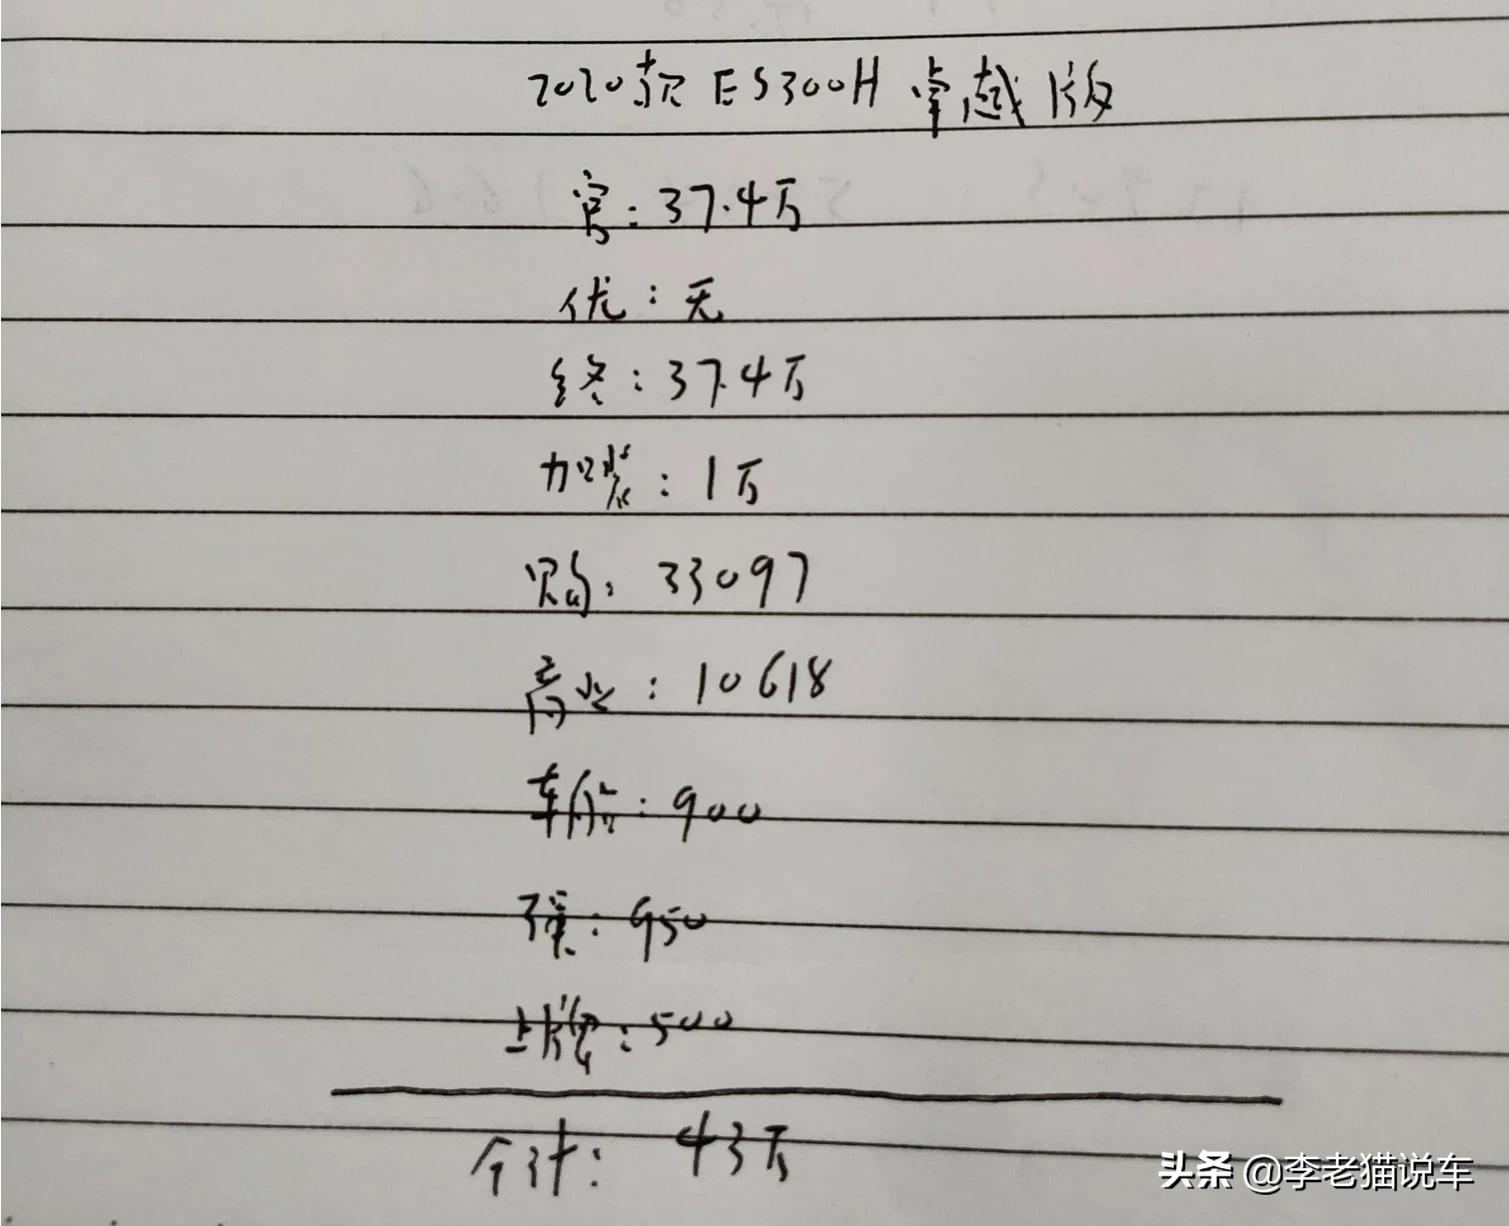 2020款 ES300H 卓越版
官：37.4万
优：无
终：37.4万
加装：1万
购：33097
商业：10618
车船：900
强：950
上牌：500
合计：43万
头条 @李老猫说车